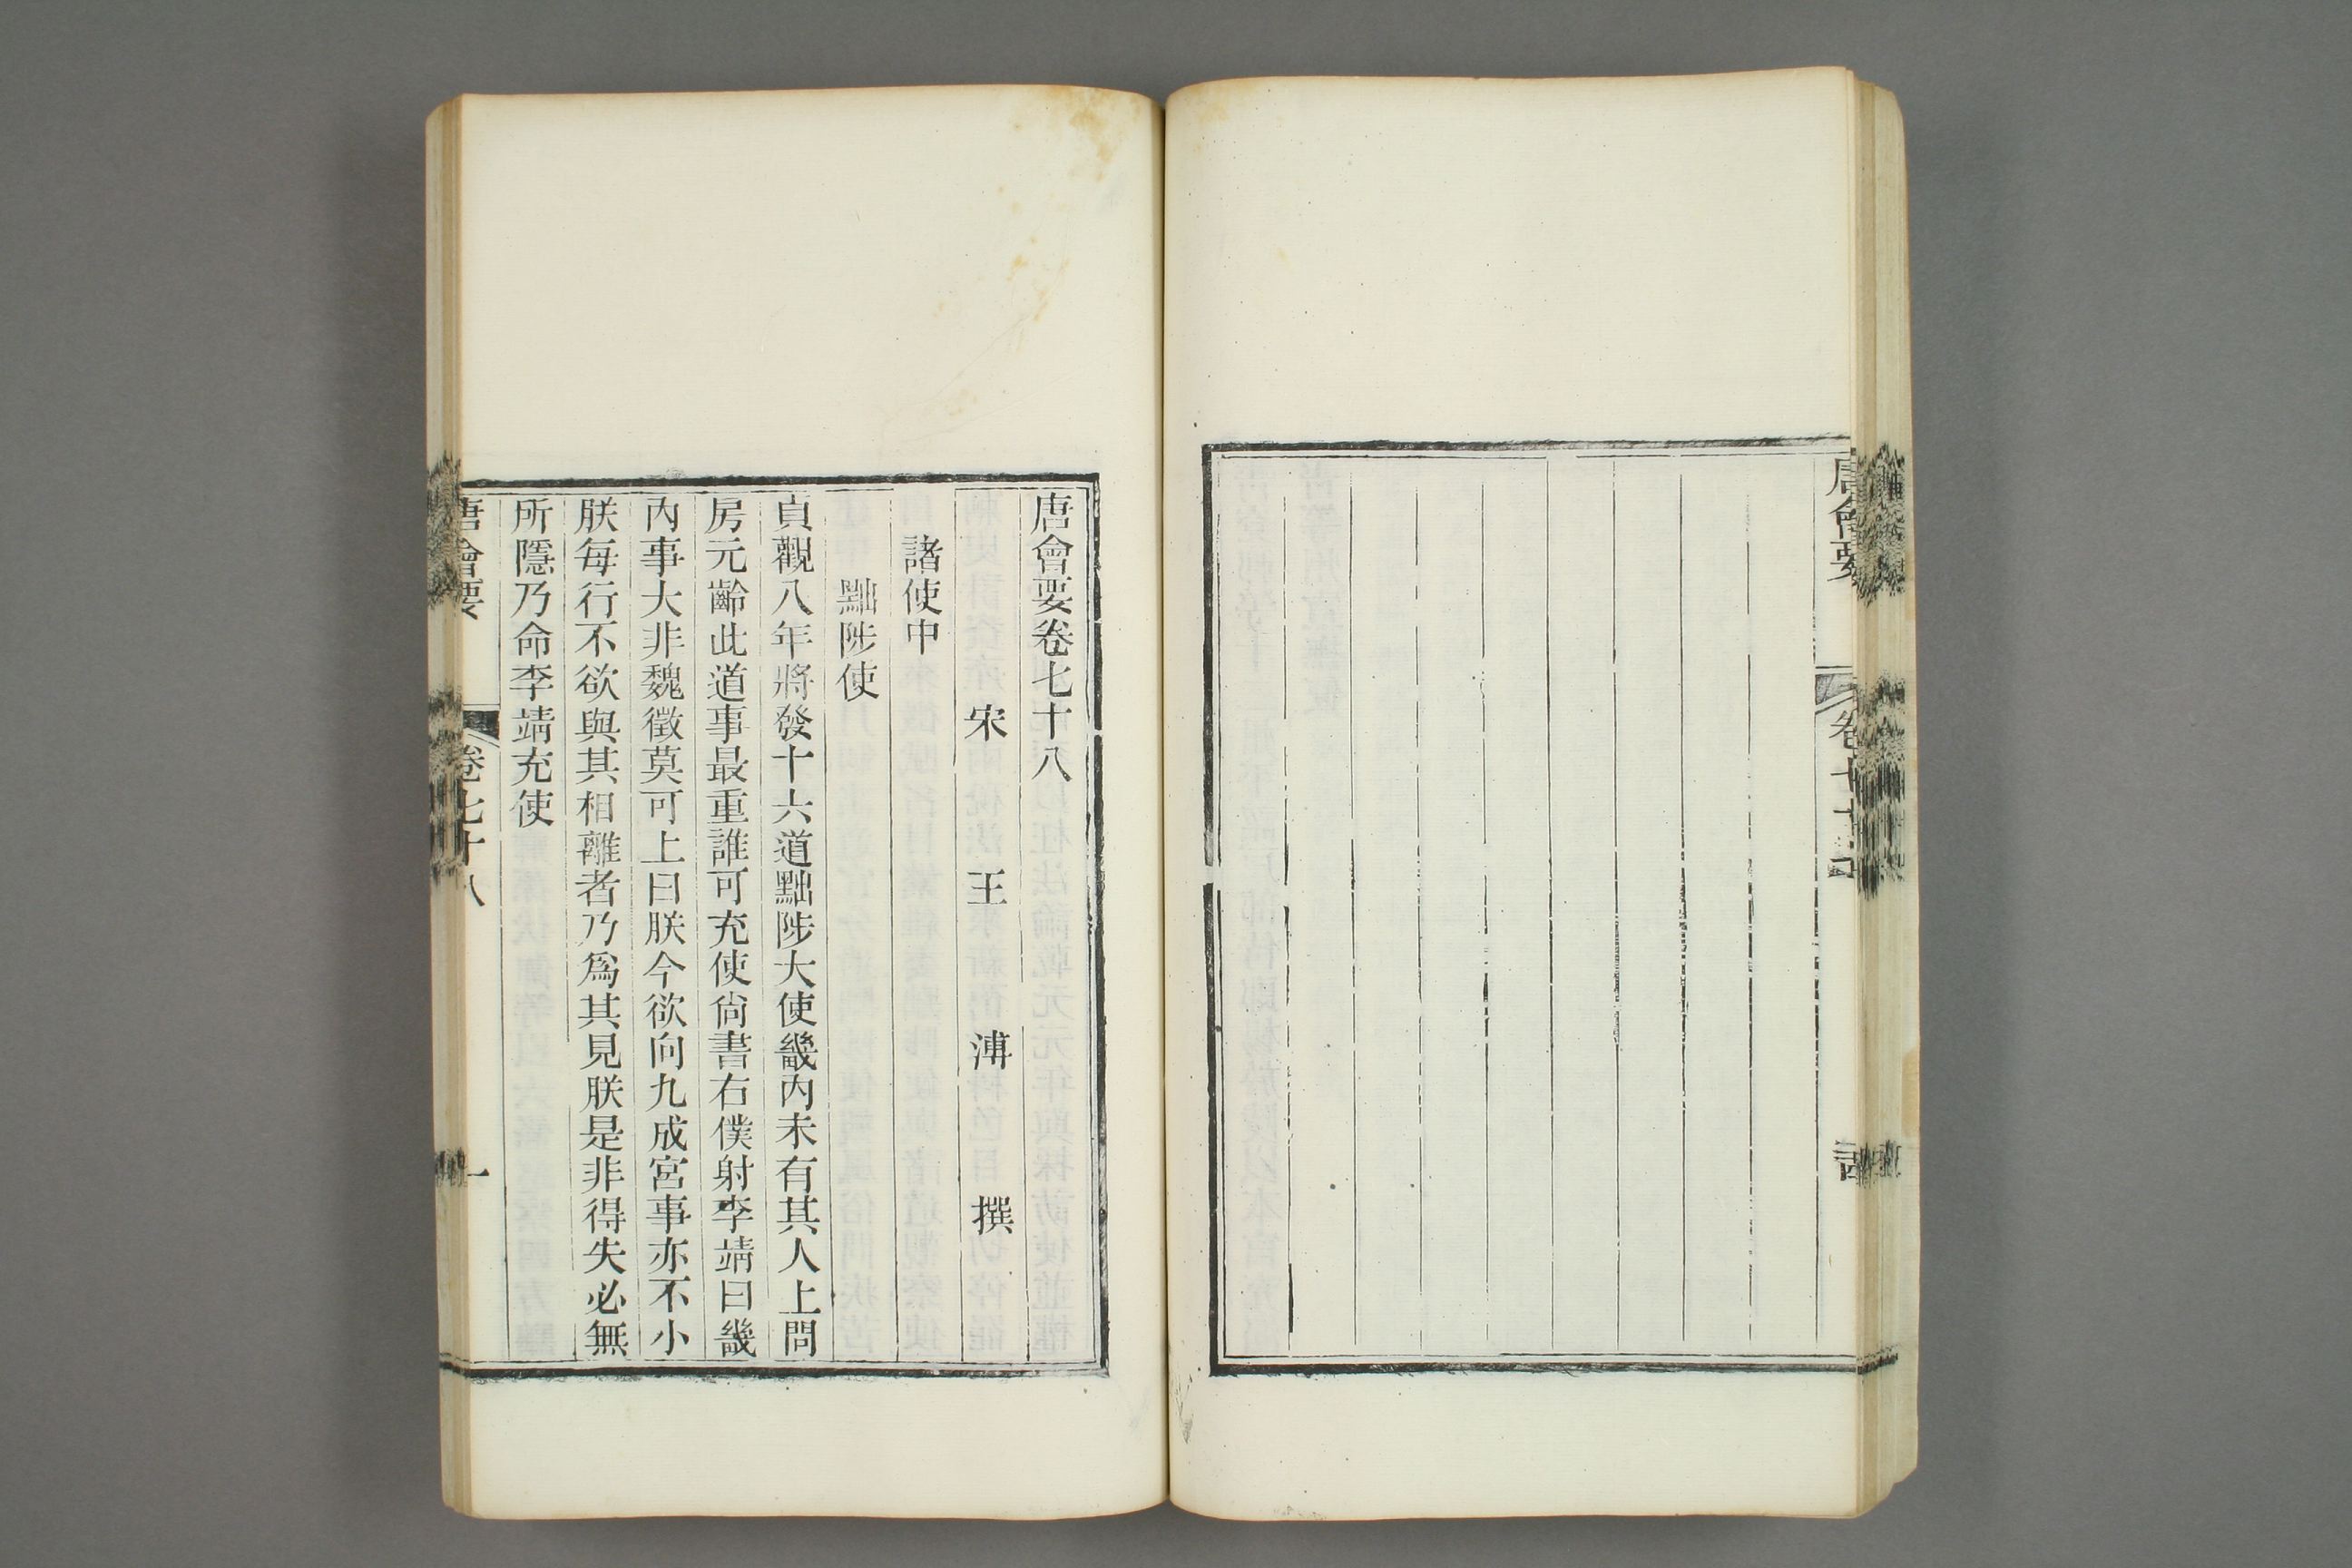 唐會要
唐會要卷七十八
宋王溥撰
諸使中
黜陟使
貞觀八年將發十六道黜陟大使畿內未有其人上問
房元齡此道事最重誰可充使尙書右僕射李靖曰畿
內事大非魏徵莫可上曰朕今欲向九成宮事亦不小
朕每行不欲與其相離者乃爲其見朕是非得失必無
所隱乃命李靖充使
唐會要 卷七十八 一